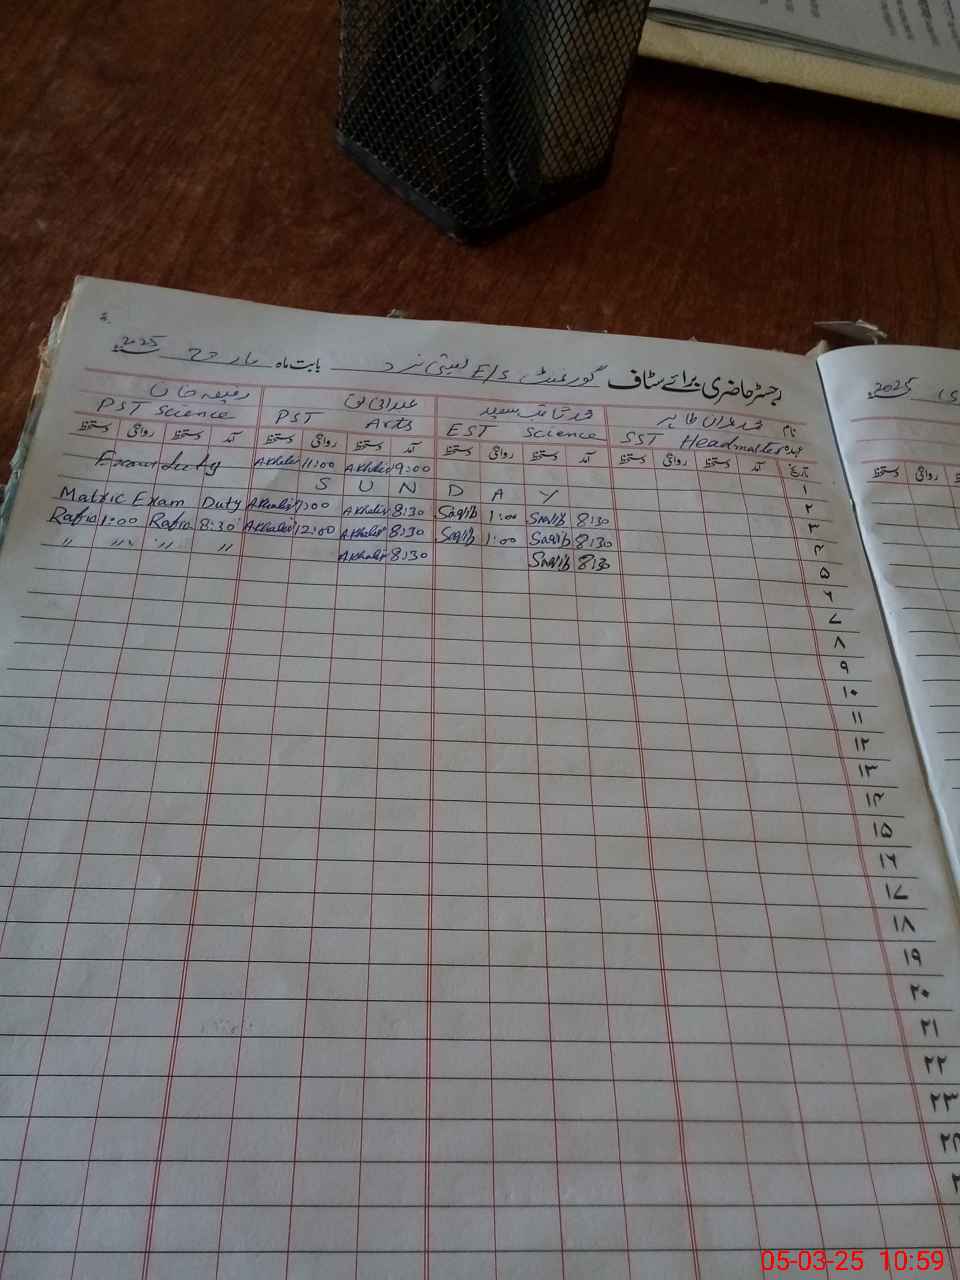 رجسٹر حاضری برائے سٹاف گورنمنٹ E/S بابت ماہ مارچ 2025ء
نام محمد عبدالخالق رفیعہ خان
عہدہ SST Headmaster EST Science PST Arts PST Science
تاریخ آمد دستخط روانگی دستخط آمد دستخط روانگی دستخط آمد دستخط روانگی دستخط آمد دستخط روانگی دستخط
Exam duty AKhaliq 11:00 AKhaliq 9:00 ۱
S U N D A Y ۲
Matric Exam Duty AKhaliq 1:00 AKhaliq 8:30 Saqib 1:00 Saqib 8:30 ۳
Rafia 1:00 Rafia 8:30 AKhaliq 12:00 AKhaliq 8:30 Saqib 1:00 Saqib 8:30 ۴
" " " " AKhaliq 8:30 Saqib 8:30 ۵
۶
۷
۸
۹
۱۰
۱۱
۱۲
۱۳
۱۴
۱۵
۱۶
۱۷
۱۸
۱۹
۲۰
۲۱
۲۲
۲۳
۲۴
2025ء
05-03-25 10:59